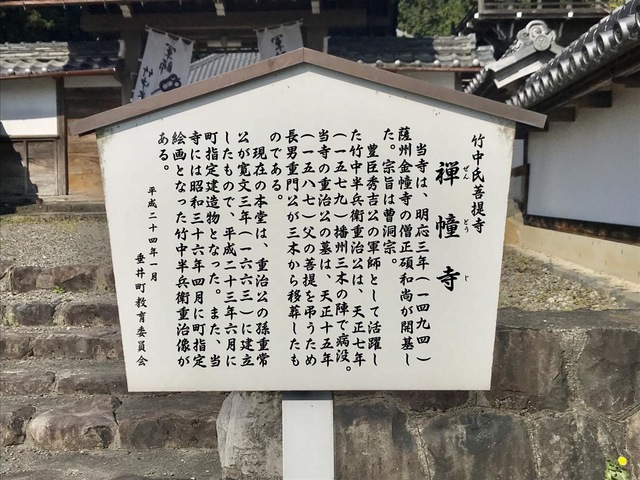 竹中氏菩提寺
禅幢寺
ぜん どう じ
当寺は、明応三年(一四九四)
薩州金幢寺の僧正碩和尚が開基し
た。宗旨は曹洞宗。
豊臣秀吉公の軍師として活躍し
た竹中半兵衛重治公は、天正七年
(一五七九)播州三木の陣で病没。
当寺の重治公の墓は、天正十五年
(一五八七)父の菩提を弔うため
長男重門公が三木から移葬したも
のである。
現在の本堂は、重治公の孫重常
公が寛文三年(一六六三)に建立
したもので、平成二十三年六月に
町指定建造物となった。また、当
寺には昭和三十六年四月に町指定
絵画となった竹中半兵衛重治像が
ある。
平成二十四年一月
垂井町教育委員会